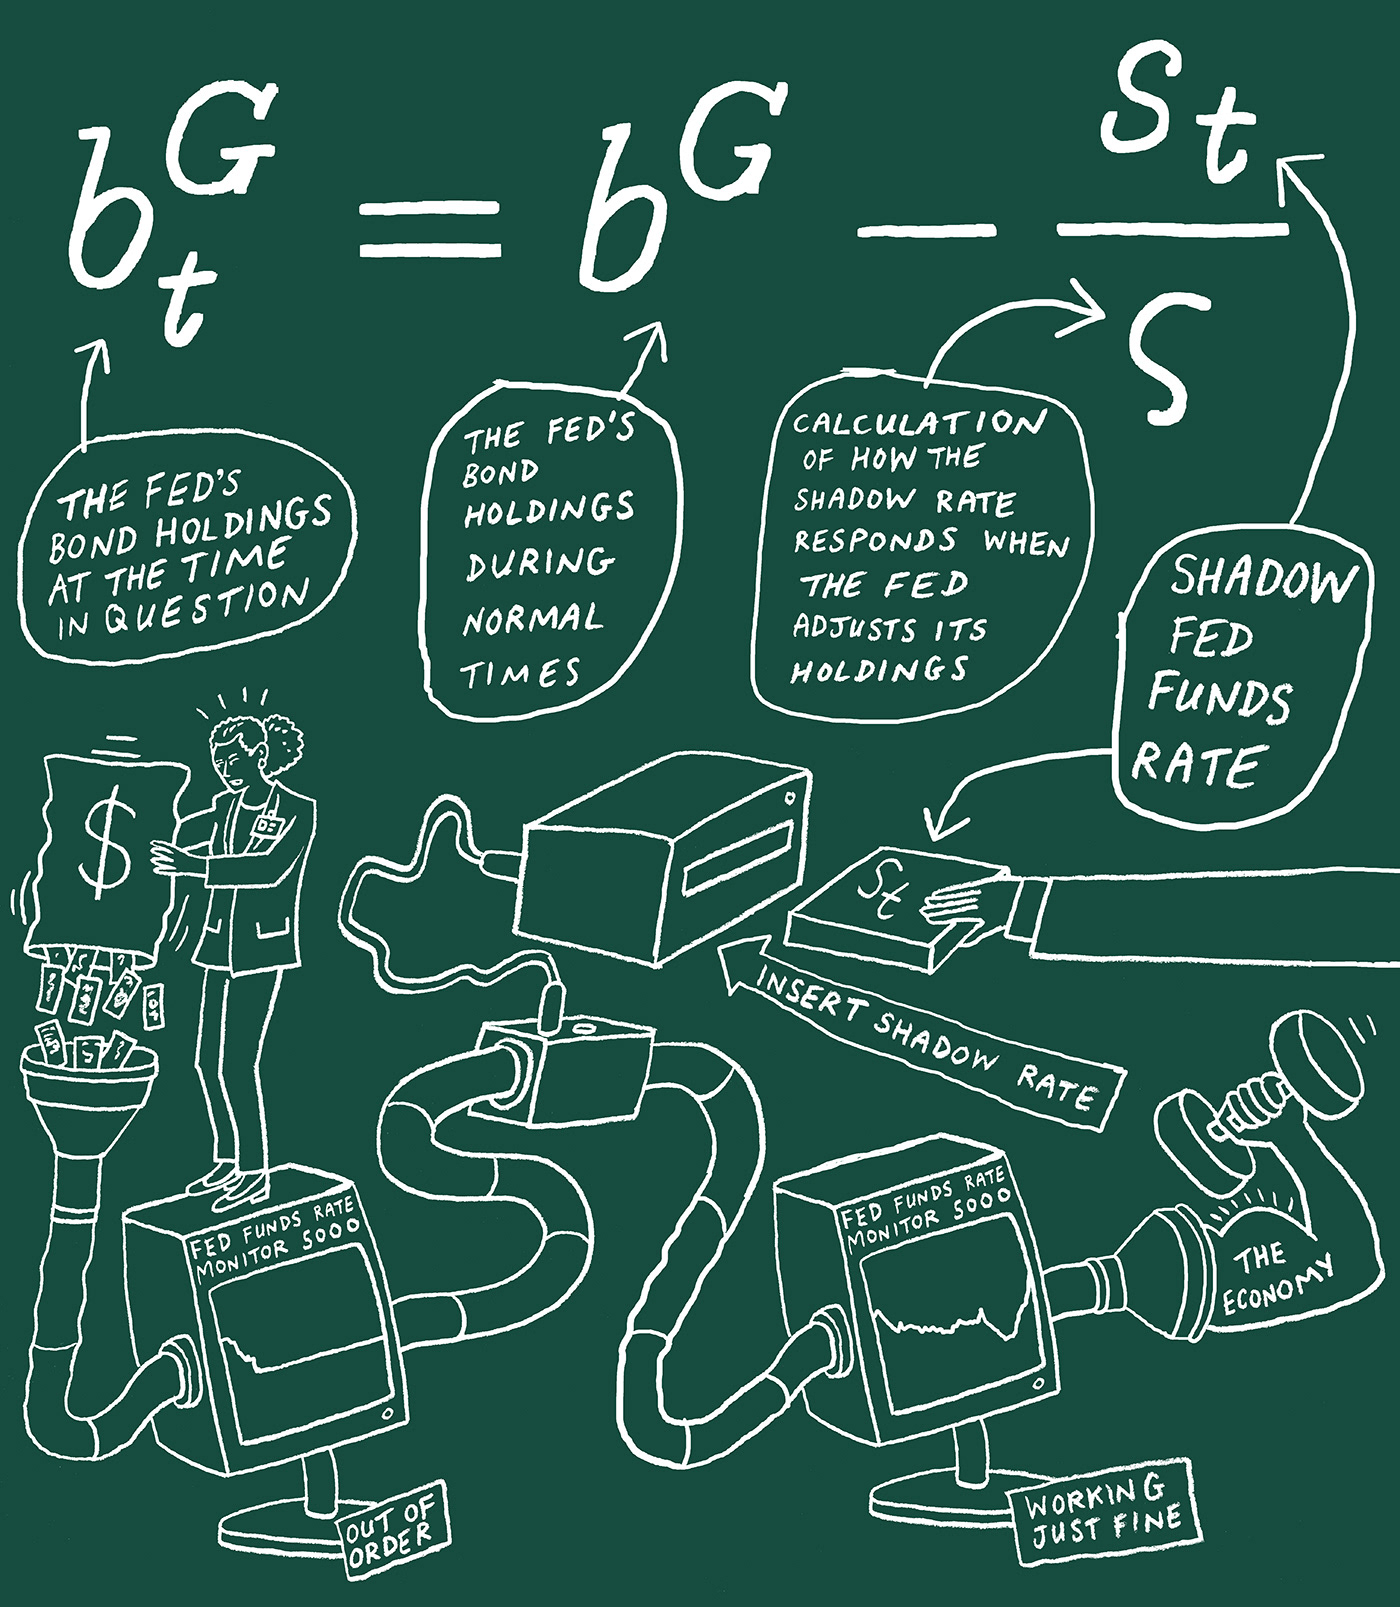 b_t^G = b^G − s_t / ς
THE FED'S
BOND HOLDINGS
AT THE TIME
IN QUESTION
THE FED'S
BOND
HOLDINGS
DURING
NORMAL
TIMES
CALCULATION
OF HOW THE
SHADOW RATE
RESPONDS WHEN
THE FED
ADJUSTS ITS
HOLDINGS
SHADOW
FED
FUNDS
RATE
$
ID
St
INSERT SHADOW RATE
FED FUNDS RATE
MONITOR 5000
FED FUNDS RATE
MONITOR 5000
THE
ECONOMY
OUT OF
ORDER
WORKING
JUST FINE